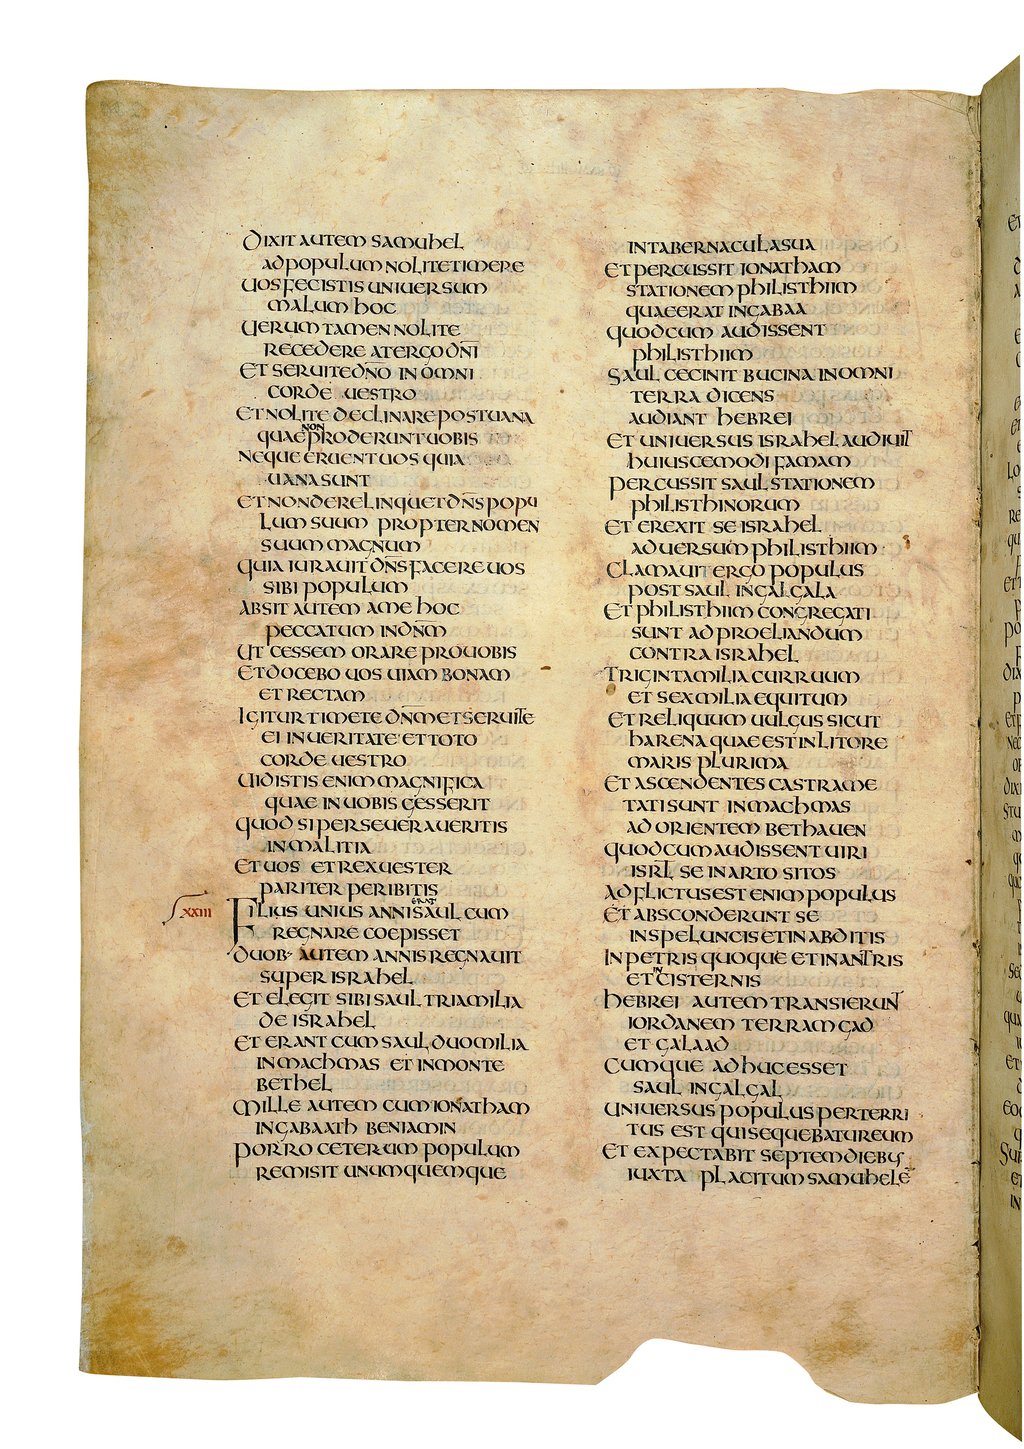 DIXIT AUTEM SAMUHEL
AD POPULUM NOLITE TIMERE
UOS FECISTIS UNIUERSUM
MALUM HOC
UERUM TAMEN NOLITE
RECEDERE A TERGO DN̄I
ET SERUITE DN̄O IN OMNI
CORDE UESTRO
ET NOLITE DECLINARE POST UANA
NON
QUAE PRODERUNT UOBIS
NEQUE ERUENT UOS QUIA
UANA SUNT
ET NON DERELINQUET DN̄S POPU
LUM SUUM PROPTER NOMEN
SUUM MAGNUM
QUIA IURAUIT DN̄S FACERE UOS
SIBI POPULUM
ABSIT AUTEM A ME HOC
PECCATUM IN DN̄M
UT CESSEM ORARE PRO UOBIS
ET DOCEBO UOS UIAM BONAM
ET RECTAM
IGITUR TIMETE DN̄M ET SERUITE
EI IN UERITATE ET TOTO
CORDE UESTRO
UIDISTIS ENIM MAGNIFICA
QUAE IN UOBIS GESSERIT
QUOD SI PERSEUERAUERITIS
IN MALITIA
ET UOS ET REX UESTER
PARITER PERIBITIS
ERAT
XXIII FILIUS UNIUS ANNI SAUL CUM
REGNARE COEPISSET
DUOB· AUTEM ANNIS REGNAUIT
SUPER ISRAHEL
ET ELEGIT SIBI SAUL TRIA MILIA
DE ISRAHEL
ET ERANT CUM SAUL DUO MILIA
IN MACHMAS ET IN MONTE
BETHEL
MILLE AUTEM CUM IONATHAM
IN GABAATH BENIAMIN
PORRO CETERUM POPULUM
REMISIT UNUMQUEMQUE
IN TABERNACULA SUA
ET PERCUSSIT IONATHAM
STATIONEM PHILISTHIIM
QUAE ERAT IN GABAA
QUOD CUM AUDISSENT
PHILISTHIIM
SAUL CECINIT BUCINA IN OMNI
TERRA DICENS
AUDIANT HEBREI
ET UNIUERSUS ISRAHEL AUDIUIT
HUIUSCEMODI FAMAM
PERCUSSIT SAUL STATIONEM
PHILISTHINORUM
ET EREXIT SE ISRAHEL
ADUERSUM PHILISTHIIM
CLAMAUIT ERGO POPULUS
POST SAUL IN GALGALA
ET PHILISTHIIM CONGREGATI
SUNT AD PROELIANDUM
CONTRA ISRAHEL
TRIGINTA MILIA CURRUUM
ET SEX MILIA EQUITUM
ET RELIQUUM UULGUS SICUT
HARENA QUAE EST IN LITORE
MARIS PLURIMA
ET ASCENDENTES CASTRAME
TATI SUNT IN MACHMAS
AD ORIENTEM BETHAUEN
QUOD CUM AUDISSENT UIRI
ISRL̄ SE IN ARTO SITOS
ADFLICTUS EST ENIM POPULUS
ET ABSCONDERUNT SE
IN SPELUNCIS ET IN ABDITIS
IN PETRIS QUOQUE ET IN ANTRIS
IN
ET CISTERNIS
HEBREI AUTEM TRANSIERUNT
IORDANEM TERRAM GAD
ET GALAAD
CUMQUE ADHUC ESSET
SAUL IN GALGAL
UNIUERSUS POPULUS PERTERRI
TUS EST QUI SEQUEBATUR EUM
ET EXPECTABIT SEPTEM DIEBUS
IUXTA PLACITUM SAMUHELE